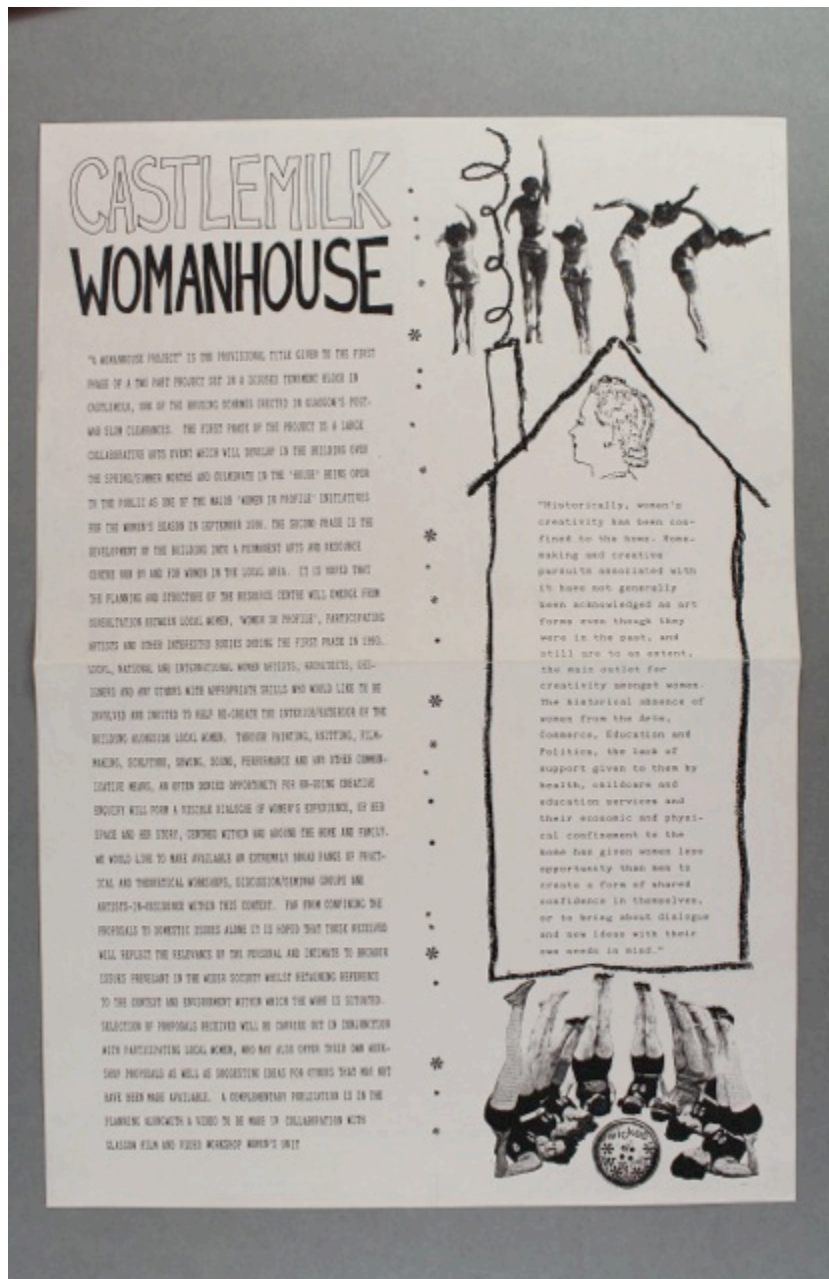 CASTLEMILK
WOMANHOUSE
"A WOMANHOUSE PROJECT" IS THE PROVISIONAL TITLE GIVEN TO THE FIRST
PHASE OF A TWO PART PROJECT SET IN A DISUSED TENEMENT BLOCK IN
CASTLEMILK, ONE OF THE HOUSING SCHEMES ERECTED IN GLASGOW'S POST-
WAR SLUM CLEARANCES. THE FIRST PHASE OF THE PROJECT IS A LARGE
COLLABORATIVE ARTS EVENT WHICH WILL DEVELOP IN THE BUILDING OVER
THE SPRING/SUMMER MONTHS AND CULMINATE IN THE 'HOUSE' BEING OPEN
TO THE PUBLIC AS ONE OF THE MAJOR 'WOMEN IN PROFILE' INITIATIVES
FOR THE WOMEN'S SEASON IN SEPTEMBER THE SECOND PHASE IS THE
DEVELOPMENT OF THE BUILDING INTO A PERMANENT ARTS AND RESOURCE
CENTRE RUN BY AND FOR WOMEN IN THE LOCAL AREA. IT IS HOPED THAT
THE PLANNING AND STRUCTURE OF THE RESOURCE CENTRE WILL EMERGE FROM
CONSULTATION BETWEEN LOCAL WOMEN, 'WOMEN IN PROFILE', PARTICIPATING
ARTISTS AND OTHER INTERESTED BODIES DURING THE FIRST PHASE IN
LOCAL, NATIONAL AND INTERNATIONAL WOMEN ARTISTS, ARCHITECTS, DES-
IGNERS AND ANY OTHERS WITH APPROPRIATE SKILLS WHO WOULD LIKE TO BE
INVOLVED ARE INVITED TO HELP RE-CREATE THE INTERIOR/EXTERIOR OF THE
BUILDING ALONGSIDE LOCAL WOMEN. THROUGH PAINTING, KNITTING, FILM-
MAKING, SCULPTURE, SEWING, SOUND, PERFORMANCE AND ANY OTHER COMMUN-
ICATIVE MEANS, AN OFTEN DENIED OPPORTUNITY FOR ON-GOING CREATIVE
ENQUIRY WILL FORM A VISIBLE DIALOGUE OF WOMEN'S EXPERIENCE, OF HER
SPACE AND HER STORY, CENTRED WITHIN AND AROUND THE HOME AND FAMILY.
WE WOULD LIKE TO MAKE AVAILABLE AN EXTREMELY BROAD RANGE OF PRACT-
ICAL AND THEORETICAL WORKSHOPS, DISCUSSION/SEMINAR GROUPS AND
ARTISTS-IN-RESIDENCE WITHIN THIS CONTEXT. FAR FROM CONFINING THE
PROPOSALS TO DOMESTIC ISSUES ALONE IT IS HOPED THAT THOSE RECEIVED
WILL REFLECT THE RELEVANCE OF THE PERSONAL AND INTIMATE TO BROADER
ISSUES PREVALENT IN THE WIDER SOCIETY WHILST RETAINING REFERENCE
TO THE CONTEXT AND ENVIRONMENT WITHIN WHICH THE WORK IS SITUATED.
SELECTION OF PROPOSALS RECEIVED WILL BE CARRIED OUT IN CONJUNCTION
WITH PARTICIPATING LOCAL WOMEN, WHO MAY ALSO OFFER THEIR OWN WORK-
SHOP PROPOSALS AS WELL AS SUGGESTING IDEAS FOR OTHERS THAT MAY NOT
HAVE BEEN MADE AVAILABLE. A COMPLEMENTARY PUBLICATION IS IN THE
PLANNING ALONGWITH A VIDEO TO BE MADE IN COLLABORATION WITH
GLASGOW FILM AND VIDEO WORKSHOP WOMEN'S UNIT
"Historically, women's
creativity has been con-
fined to the home. Home-
making and creative
pursuits associated with
it have not generally
been acknowledged as art
forms even though they
were in the past, and
still are to an extent,
the main outlet for
creativity amongst women.
The historical absence of
women from the Arts,
Commerce, Education and
Politics, the lack of
support given to them by
health, childcare and
education services and
their economic and physi-
cal confinement to the
home has given women less
opportunity than men to
create a form of shared
confidence in themselves,
or to bring about dialogue
and new ideas with their
own needs in mind."